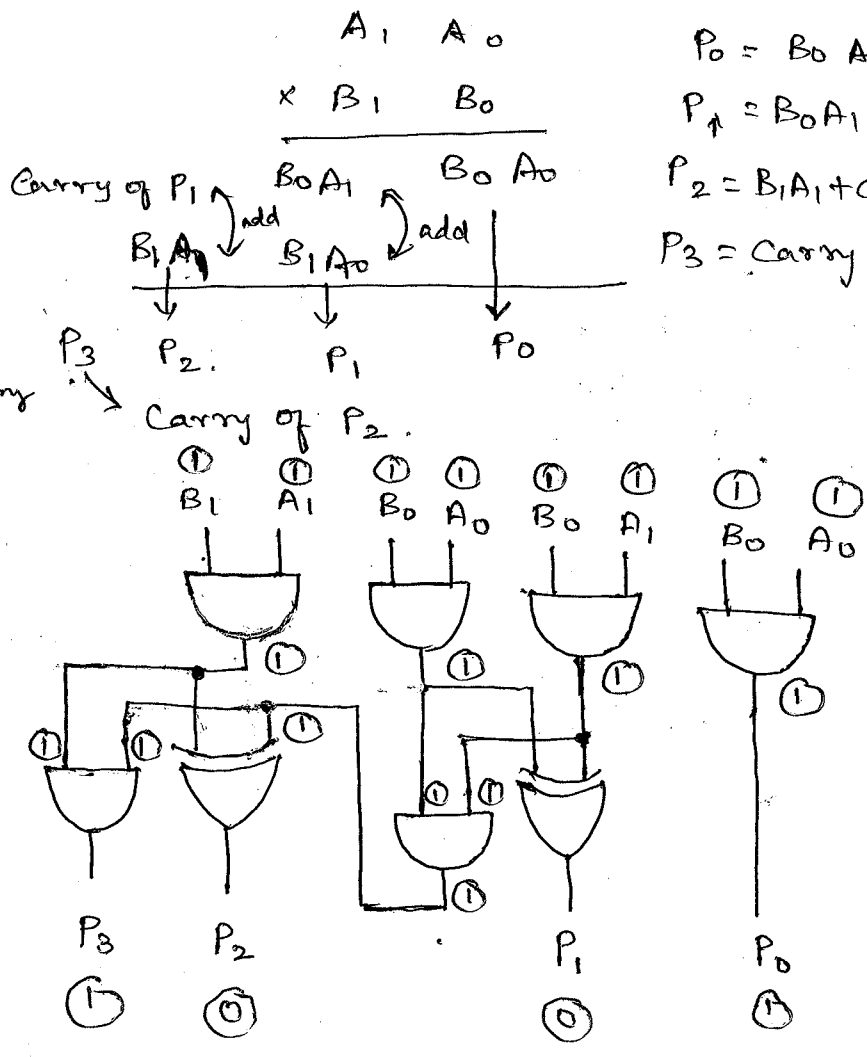 A1 A0
× B1 B0
Carry of P1 B0A1 B0 A0
add add
B1 B1A0
P3 P2. P1 P0
Carry of P2.
P0 = B0 A
P1 = B0A1
P2 = B1A1+C
P3 = Carry
1 1 1 1 1 1 1 1
B1 A1 B0 A0 B0 A1 B0 A0
1 1 1 1
1 1 1
1 1
1
P3 P2 P1 P0
1 0 0 1